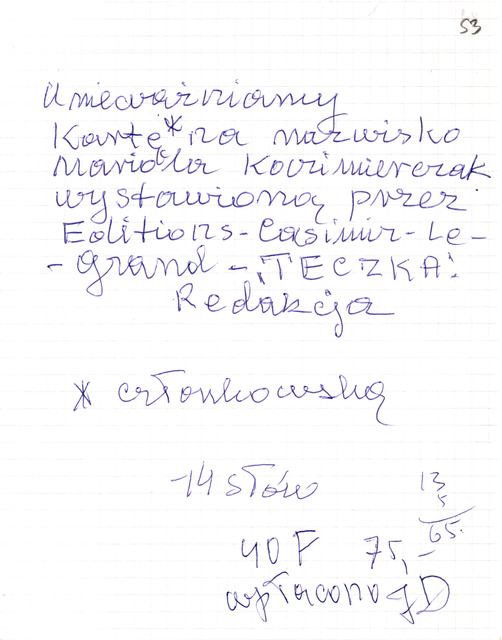 53
Unieważniamy
Kartę* na nazwisko
Mariola Kazimierczak
wystawioną przez
Editions-Casimir-Le-
-Grand-„TECZKA".
Redakcja
* członkowską
14 słów
13
5
65.
40 F 75,-
wpłacono JD